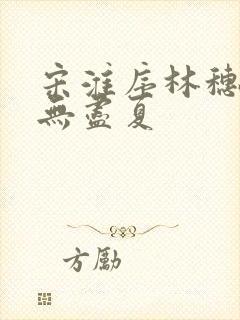 宋淮序林穗
無盡夏
方勵